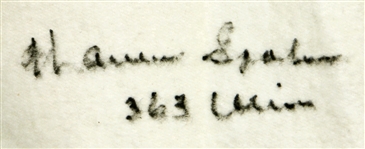 Warren Spahn
363 Wins